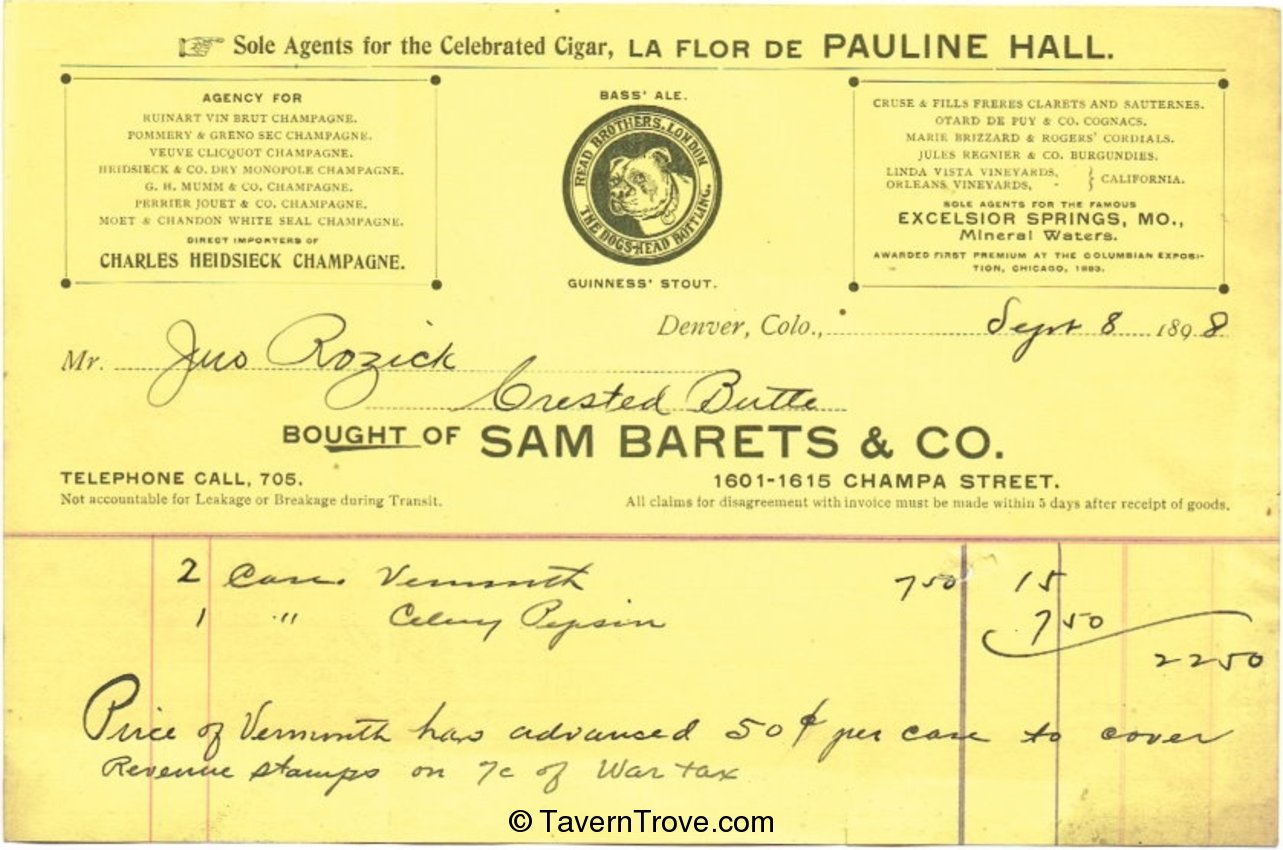 Sole Agents for the Celebrated Cigar, LA FLOR DE PAULINE HALL.
AGENCY FOR
RUINART VIN BRUT CHAMPAGNE.
POMMERY & GRENO SEC CHAMPAGNE.
VEUVE CLICQUOT CHAMPAGNE.
HEIDSIECK & CO. DRY MONOPOLE CHAMPAGNE.
G. H. MUMM & CO. CHAMPAGNE.
PERRIER JOUET & CO. CHAMPAGNE.
MOET & CHANDON WHITE SEAL CHAMPAGNE.
DIRECT IMPORTERS OF
CHARLES HEIDSIECK CHAMPAGNE.
BASS' ALE.
READ BROTHERS, LONDON
THE DOGS-HEAD BOTTLING.
GUINNESS' STOUT.
CRUSE & FILLS FRERES CLARETS AND SAUTERNES.
OTARD DE PUY & CO. COGNACS.
MARIE BRIZZARD & ROGERS' CORDIALS.
JULES REGNIER & CO. BURGUNDIES.
LINDA VISTA VINEYARDS,
ORLEANS VINEYARDS, - } CALIFORNIA.
SOLE AGENTS FOR THE FAMOUS
EXCELSIOR SPRINGS, MO.,
Mineral Waters.
AWARDED FIRST PREMIUM AT THE COLUMBIAN EXPOSI-
TION, CHICAGO, 1893.
Denver, Colo., Sept 8 1898
Mr. Jno Rozick
Crested Butte
BOUGHT OF SAM BARETS & CO.
TELEPHONE CALL, 705. 1601-1615 CHAMPA STREET.
Not accountable for Leakage or Breakage during Transit. All claims for disagreement with invoice must be made within 5 days after receipt of goods.
2 Cases Vermouth 7 50 15
1 " Celery Pepsin 7 50
22 50
Price of Vermouth has advanced 50¢ per case to cover
Revenue stamps on 7c of War tax
© TavernTrove.com